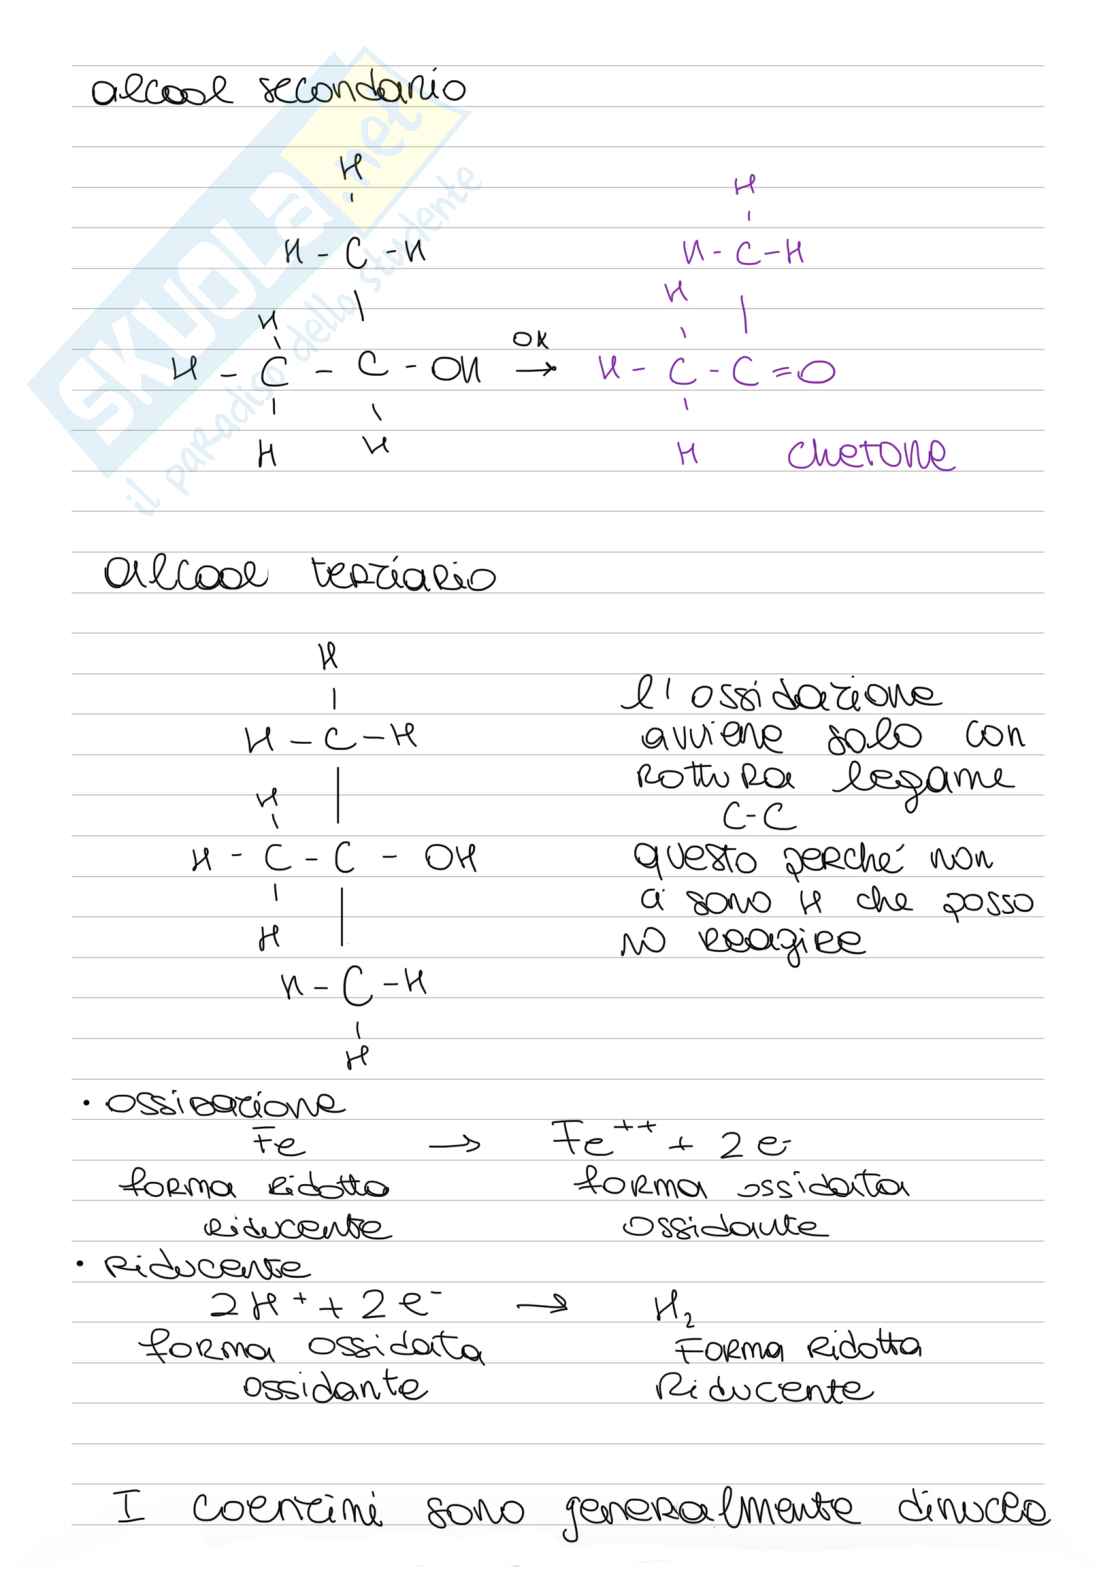 alcool secondario
H
H
H - C - H
H - C - H
H
H
OX
H - C - C - OH → H - C - C = O
H
H
H
chetone
alcool terziario
H
l'ossidazione
H - C - H
avviene solo con
rottura legame
H
C-C
H - C - C - OH
questo perché non
ci sono H che posso
H
no reagire
H - C - H
H
• ossidazione
Fe → Fe++ + 2 e-
forma ridotta
forma ossidata
riducente
ossidante
• Riducente
2H+ + 2e- → H2
forma ossidata
Forma Ridotta
ossidante
Riducente
I coenzimi sono generalmente dinucleo
SKUOLA.net
il paradiso dello studente